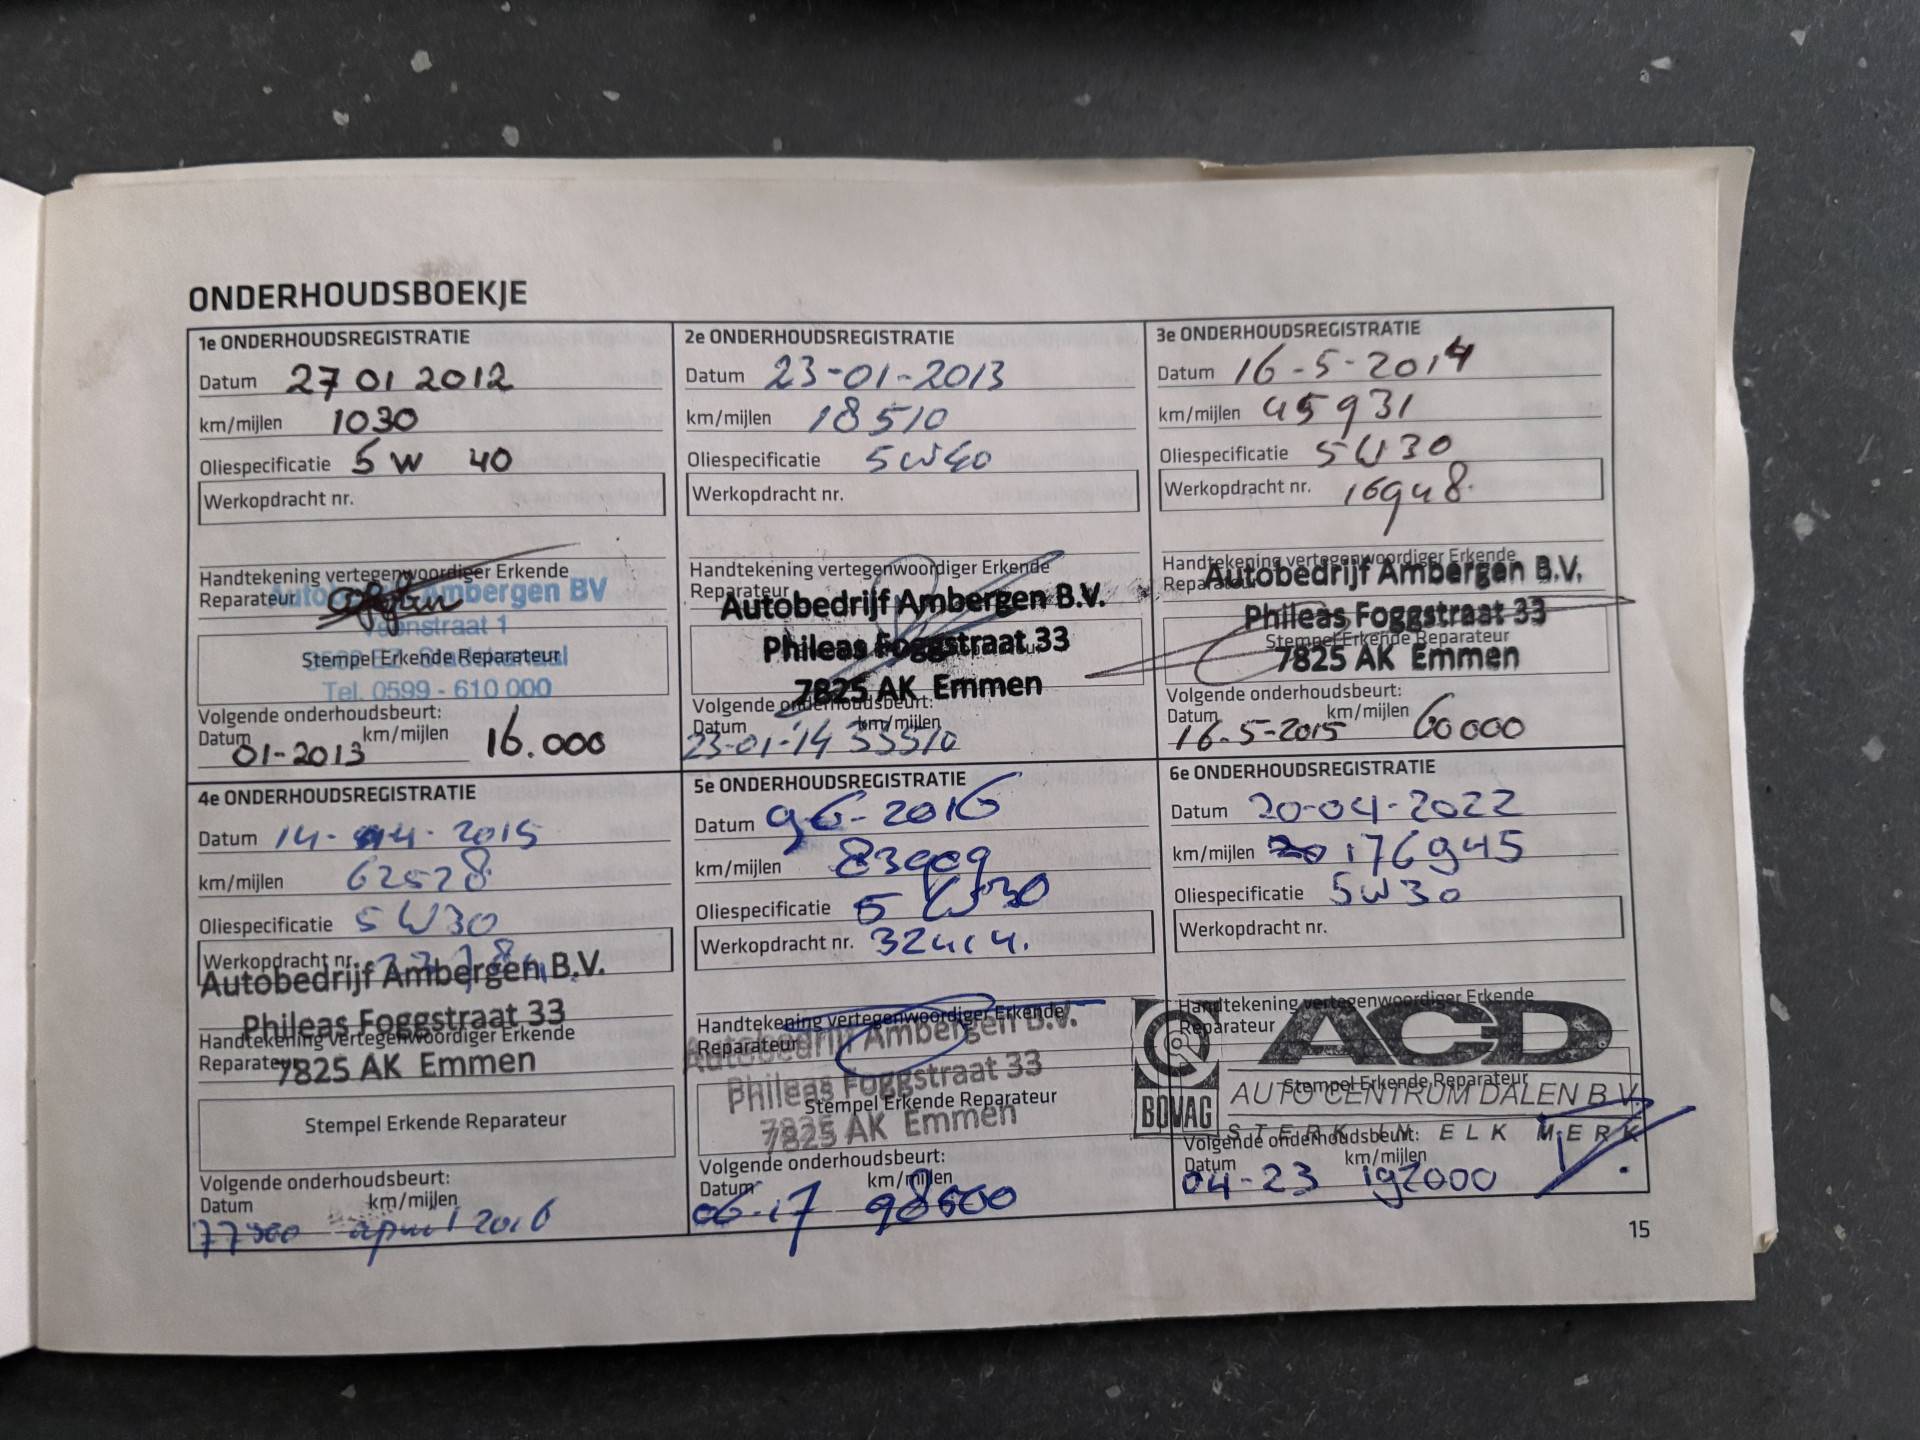 ONDERHOUDSBOEKJE
1e ONDERHOUDSREGISTRATIE
Datum 27 01 2012
km/mijlen 1030
Oliespecificatie 5 W 40
Werkopdracht nr.
Handtekening vertegenwoordiger Erkende
Reparateur
Autobedrijf Ambergen BV
Veenstraat 1
Stempel Erkende Reparateur
Tel. 0599 - 610 000
Volgende onderhoudsbeurt:
Datum km/mijlen
01-2013 16.000
2e ONDERHOUDSREGISTRATIE
Datum 23-01-2013
km/mijlen 18510
Oliespecificatie 5W40
Werkopdracht nr.
Handtekening vertegenwoordiger Erkende
Reparateur
Autobedrijf Ambergen B.V.
Phileas Foggstraat 33
7825 AK Emmen
Volgende onderhoudsbeurt:
Datum km/mijlen
23-01-'14 33510
3e ONDERHOUDSREGISTRATIE
Datum 16-5-2014
km/mijlen 45931
Oliespecificatie 5W30
Werkopdracht nr. 16948.
Handtekening vertegenwoordiger Erkende
Reparateur
Autobedrijf Ambergen B.V.
Phileas Foggstraat 33
Stempel Erkende Reparateur
7825 AK Emmen
Volgende onderhoudsbeurt:
Datum km/mijlen
16-5-2015 60000
4e ONDERHOUDSREGISTRATIE
Datum 14-04-2015
km/mijlen 62528
Oliespecificatie 5W30
Werkopdracht nr.
Autobedrijf Ambergen B.V.
Phileas Foggstraat 33
Handtekening vertegenwoordiger Erkende
Reparateur
7825 AK Emmen
Stempel Erkende Reparateur
Volgende onderhoudsbeurt:
Datum km/mijlen
april 2016
5e ONDERHOUDSREGISTRATIE
Datum 9-6-2016
km/mijlen 83909
Oliespecificatie 5W30
Werkopdracht nr. 32414.
Handtekening vertegenwoordiger Erkende
Reparateur
Autobedrijf Ambergen B.V.
Phileas Foggstraat 33
Stempel Erkende Reparateur
7825 AK Emmen
Volgende onderhoudsbeurt:
Datum km/mijlen
06-17
6e ONDERHOUDSREGISTRATIE
Datum 20-04-2022
km/mijlen 176945
Oliespecificatie 5W30
Werkopdracht nr.
Handtekening vertegenwoordiger Erkende
Reparateur
BOVAG
ACD
Stempel Erkende Reparateur
AUTO CENTRUM DALEN B.V.
STERK IN ELK MERK
Volgende onderhoudsbeurt:
Datum km/mijlen
04-23 192000
15